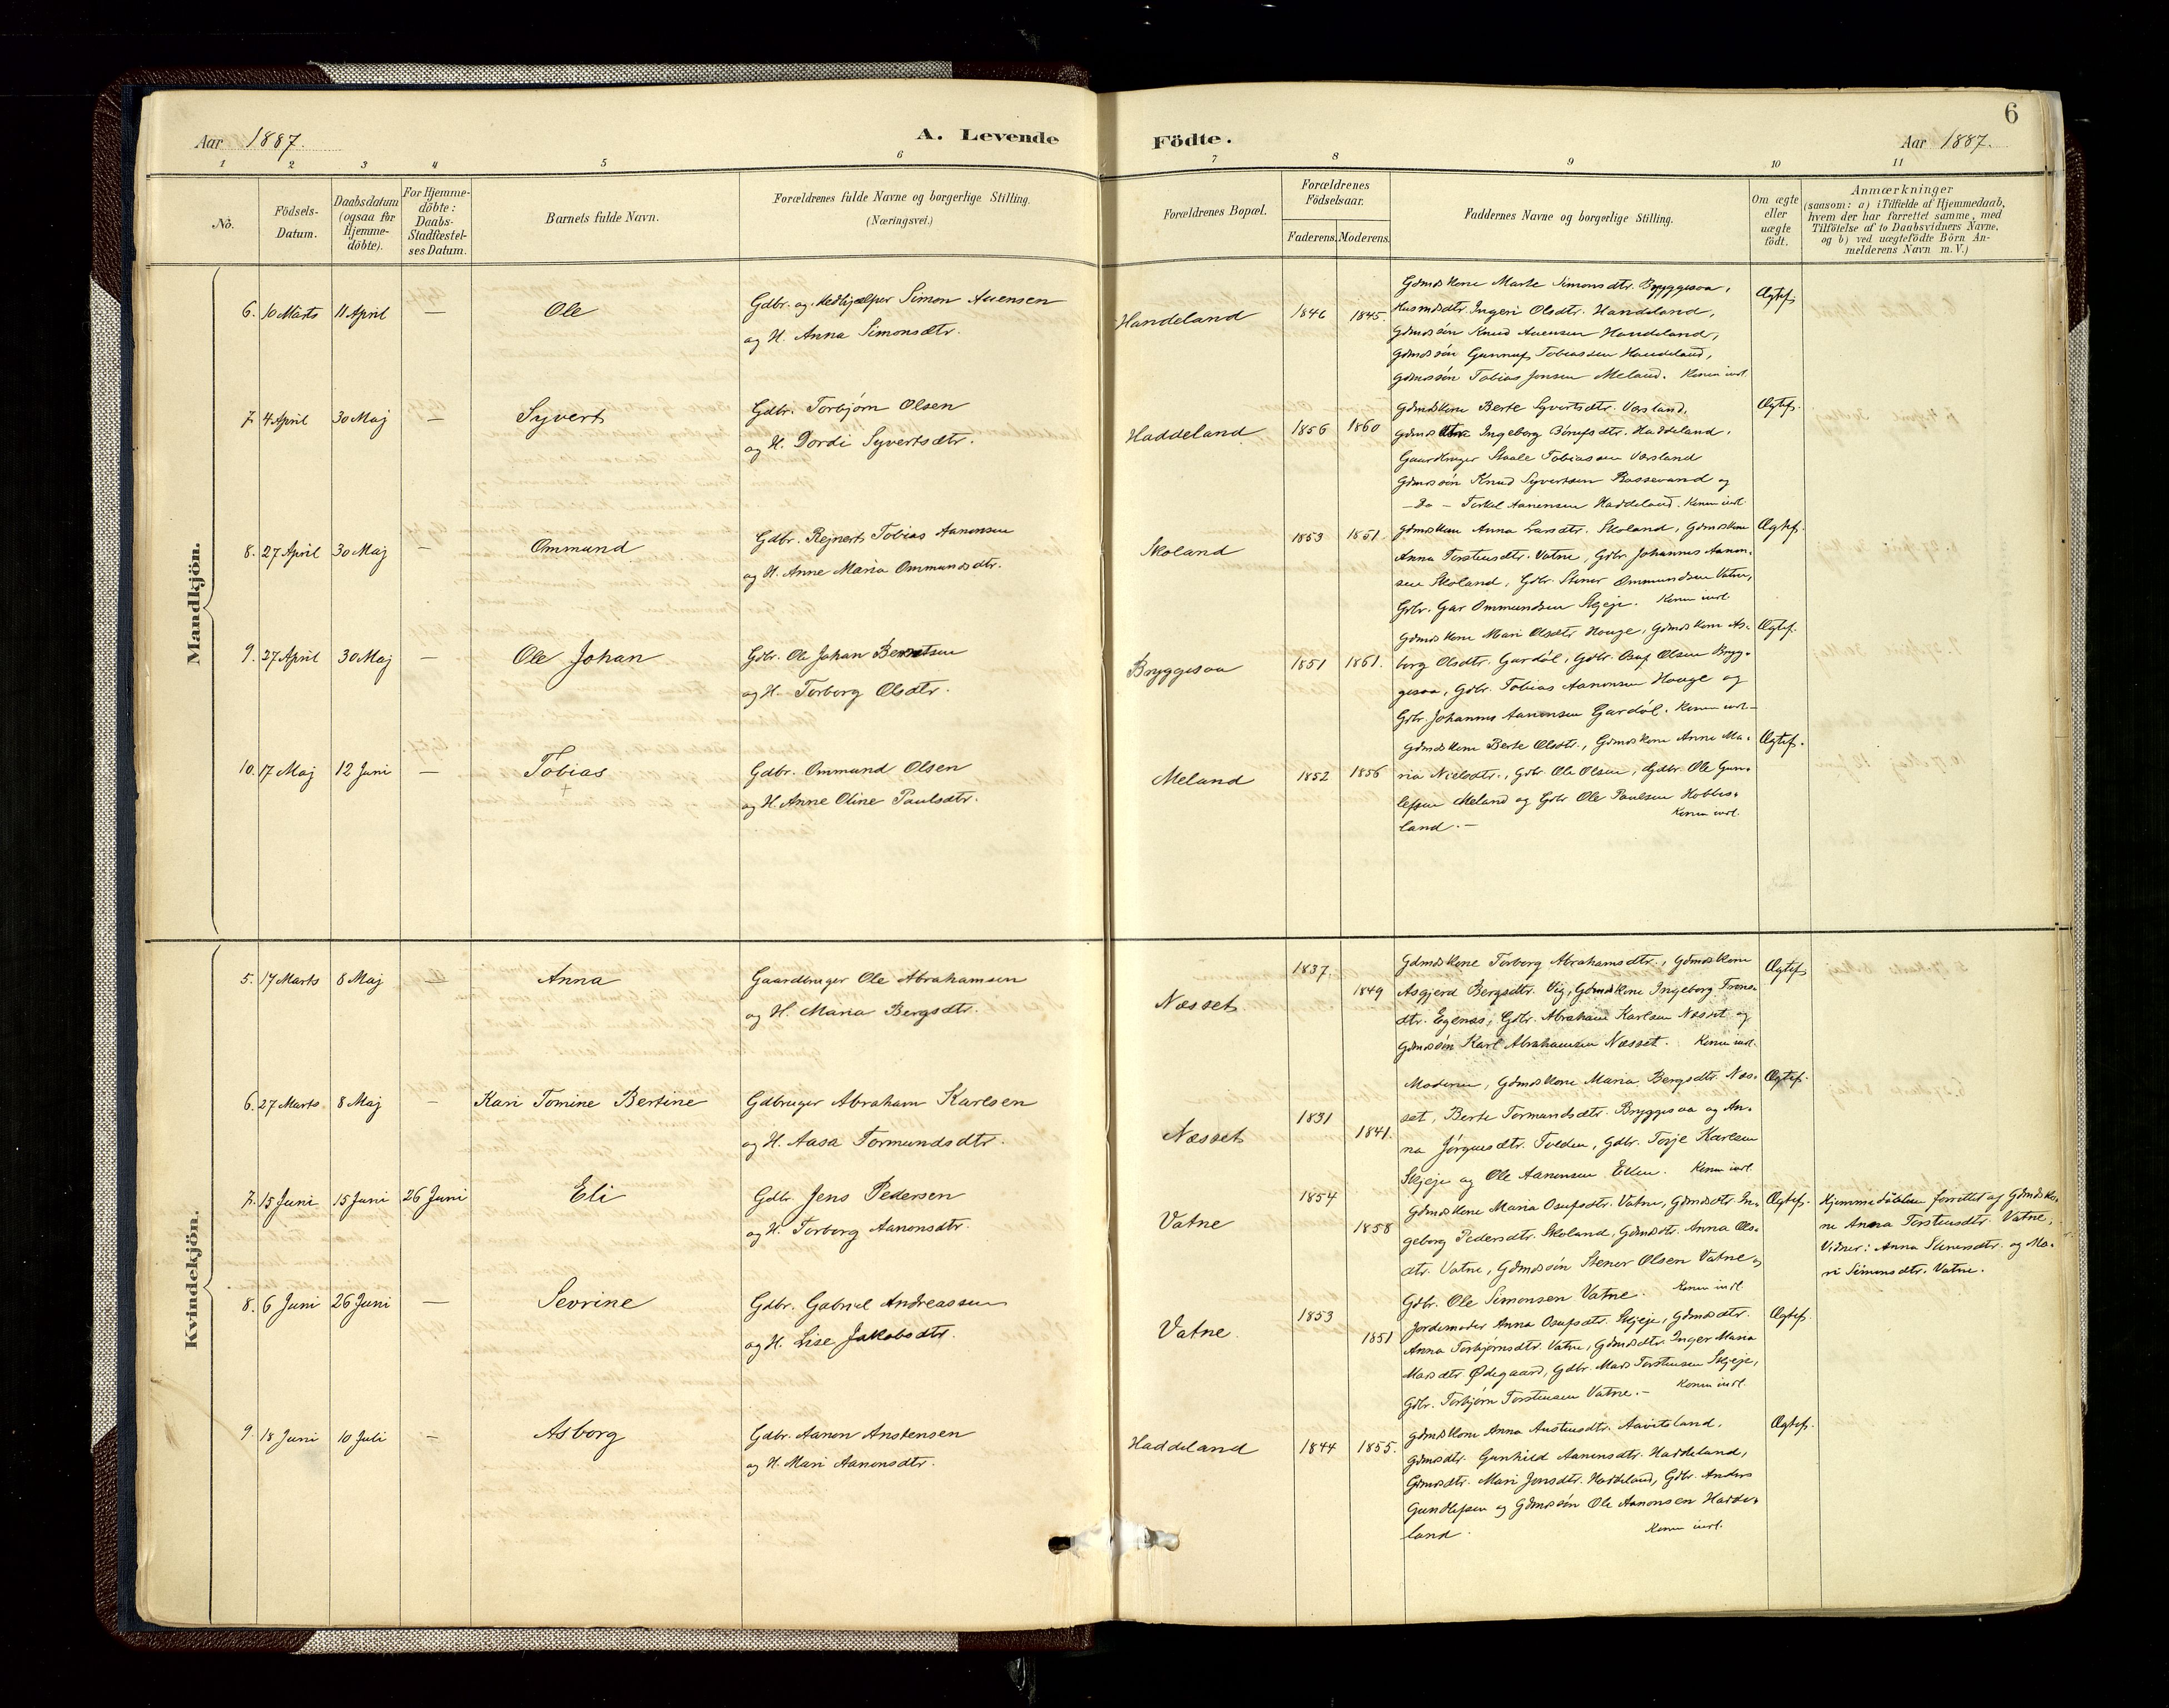 6
Aar 1887.
A. Levende Födte.
Aar 1887.
1 2 3 4 5 6 7 8 9 10 11
No.
Födsels-
Datum.
Daabsdatum
(ogsaa for
Hjemme-
döbte).
For Hjemme-
döbte:
Daabs-
Stadfæstel-
ses Datum.
Barnets fulde Navn.
Forældrenes fulde Navne og borgerlige Stilling.
(Næringsvei.)
Forældrenes Bopæl.
Forældrenes
Födselsaar.
Faderens. Moderens.
Faddernes Navne og borgerlige Stilling.
Om ægte
eller
uægte
födt.
Anmærkninger
(saasom: a) i Tilfælde af Hjemmedaab,
hvem der har forrettet samme, med
Tilföielse af to Daabsvidners Navne,
og b) ved uægtefödte Börn An-
melderens Navn m.V.)
Mandkjön.
6. 10 Marts 11 April — Ole
Gdbr. og Medhjælper Simon Auensen
og H. Anna Simonsdtr.
Handeland 1846 1845.
Gdmdskone Marte Simonsdtr. Bryggesaa,
Husmdsdtr. Ingeri Olsdtr. Handeland,
Gdmdssön Knud Auensen Handeland,
Gdmdssön Gunnuf Tobiassen Handeland,
Gdmdssön Tobias Jensen Meland. Konen indl.
Ægtef.
7. 4 April 30 Maj — Syvert
Gdbr. Torbjörn Olsen
og H. Dordi Syvertsdtr.
Haddeland 1856 1860
Gdmdskone Berte Syvertsdtr. Vorsland,
Gdmdsdtr. Ingeborg Brufsdtr. Haddeland,
Gaardbruger Staale Tobiassen Vorsland
Gdmdssön Knud Syvertsen Rossevand og
— Do — Terkel Aanensen Haddeland. Konen indl.
Ægtef.
8. 27 April 30 Maj — Ommund
Gdbr. Rejnert Tobias Aanensen
og H. Anne Maria Ommundsdtr.
Skoland 1853 1851
Gdmdskone Anna Larsdtr. Skoland, Gdmdskone
Anna Torstensdtr. Vatne, Gdbr. Johannes Aanen-
sen Skoland, Gdbr. Stener Ommundsen Vatne,
Gdbr. Gar Ommundsen Skjeje. Konen indl.
Ægtef.
9. 27 April 30 Maj — Ole Johan
Gdbr. Ole Johan Berntsen
og H. Torborg Olsdtr.
Bryggesaa 1851 1861.
Gdmdskone Mari Olsdtr. Houge, Gdmdskone As-
borg Olsdtr. Gardöl, Gdbr. Osuf Olsen Bryg-
gesaa, Gdbr. Tobias Aanensen Houge og
Gdbr. Johannes Aanensen Gardöl. Konen indl.
Ægtef.
10. 17 Maj 12 Juni — Tobias
+
Gdbr. Ommund Olsen
og H. Anne Oline Paulsdtr.
Meland 1852 1856
Gdmdskone Berte Olsdtr., Gdmdskone Anne Ma-
ria Nielsdtr., Gdbr. Ole Olsen, Gdbr. Ole Gun-
lefsen Meland og Gdbr. Ole Paulsen Hobbes-
land. — Konen indl.
Ægtef.
Kvindekjön.
5. 17 Marts 8 Maj — Anna
Gaardbruger Ole Abrahamsen
og H. Maria Bergsdtr.
Næsset 1837. 1849
Gdmdskone Torborg Abrahamsdtr., Gdmdskone
Asgjerd Bergsdtr. Vig, Gdmdskone Ingeborg Tröns-
dtr. Egenæs, Gdbr. Abraham Karlsen Næsset og
Gdmdssön Karl Abrahamsen Næsset. Konen indl.
Ægtef.
6. 27 Marts 8 Maj — Kari Tomine Bertine
Gdbruger Abraham Karlsen
og H. Aasa Tormundsdtr.
Næsset 1831 1841.
Moderen, Gdmdskone Maria Bergsdtr. Næs-
set, Berte Tormundsdtr. Bryggesaa og An-
na Jörgensdtr. Tveden, Gdbr. Torje Karlsen
Skjeje og Ole Aanensen Eiken. Konen indl.
Ægtef.
7. 15 Juni 15 Juni 26 Juni Eli
Gdbr. Jens Pedersen
og H. Torborg Aanonsdtr.
Vatne 1854 1858
Gdmdskone Maria Osufsdtr. Vatne, Gdmdsdtr. In-
geborg Pedersdtr. Skoland, Gdmdsdtr. Anna Ols-
dtr. Vatne, Gdmdssön Stener Olsen Vatne og
Gdbr. Ole Simonsen Vatne. Konen indl.
Ægtef.
Hjemmedöbelsen forrettet af Gdmdsko-
ne Anna Torstensdtr. Vatne,
Vidner: Anna Stenersdtr. og Ma-
ri Simonsdtr. Vatne.
8. 6 Juni 26 Juni — Sevrine
Gdbr. Gabriel Andreassen
og H. Lise Jakobsdtr.
Vatne. 1853 1851
Jordemoder Anna Osufsdtr. Skjeje, Gdmdsdtr.
Anna Torbjörnsdtr. Vatne, Gdmdsdtr. Inger Maria
Mosdtr. Ödegaard, Gdbr. Mads Torstensen Skjeje,
Gdbr. Torbjörn Torstensen Vatne. — Konen indl.
Ægtef.
9. 18 Juni 10 Juli — Asborg
Gdbr. Aanen Anstensen
og H. Mari Aanensdtr.
Haddeland 1844 1855.
Gdmdskone Anna Austensdtr. Aavitsland,
Gdmdsdtr. Gunhild Aanensdtr. Haddeland,
Gdmdsdtr. Mari Jensdtr. Haddeland, Gdbr. Anders
Gundlefsen og Gdmdssön Ole Aanonsen Hadde-
land. Konen indl.
Ægtef.